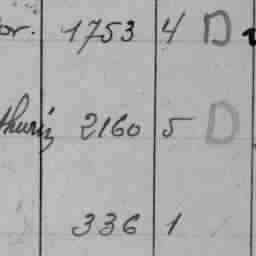 or. 1753 4 D
thuriz 2160 5 D
336 1